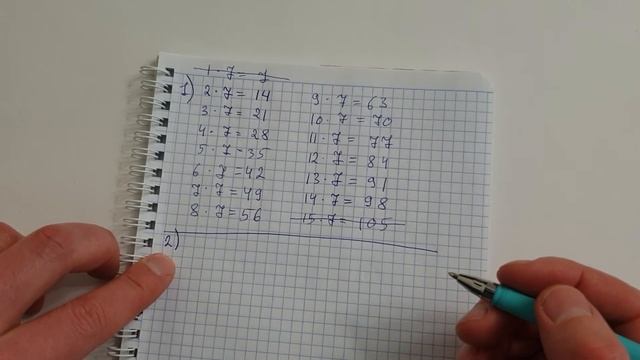 1 · 7 = 7
1) 2 · 7 = 14
3 · 7 = 21
4 · 7 = 28
5 · 7 = 35
6 · 7 = 42
7 · 7 = 49
8 · 7 = 56
9 · 7 = 63
10 · 7 = 70
11 · 7 = 77
12 · 7 = 84
13 · 7 = 91
14 · 7 = 98
15 · 7 = 105
2)